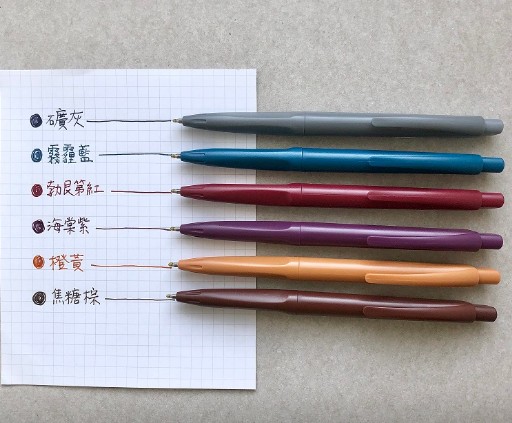 礦灰
霧霾藍
勃艮第紅
海棠紫
橙黃
焦糖棕